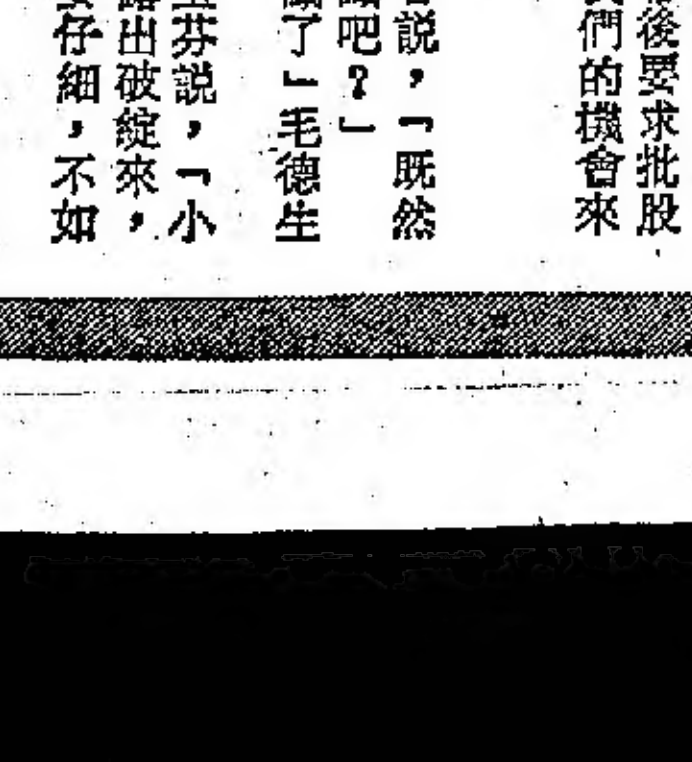 後要求批股
們的機會來
說，「既然
吧？」
了」毛德生
芬説，「小
出破綻來，
仔細，不如